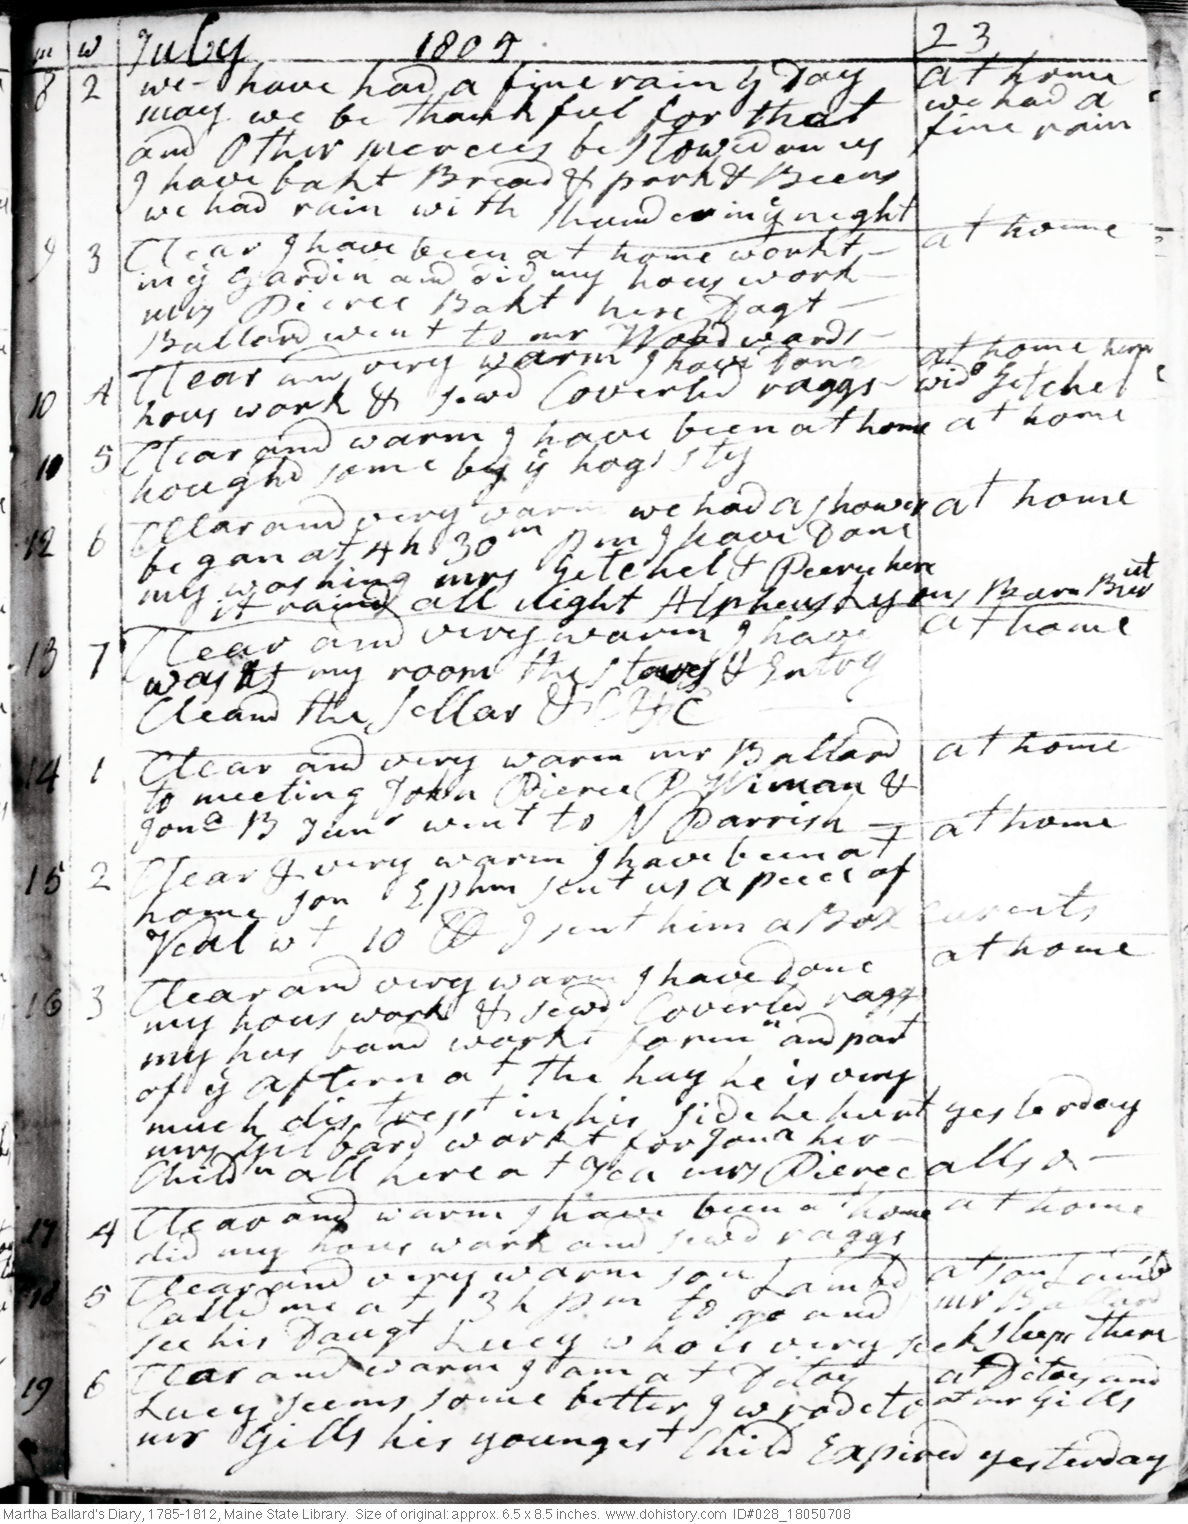 m w July 1805 23
8 2 we have had a fine rain ÿ Day at home
may we be thankful for that we had a
and Other mercies bestowed on us fine rain
I have bakt Bread & pork & Beens
we had rain with thundering ÿ night
9 3 Clear I have been at home workt at home
in ÿ gardin and did my hous work
mrs Pierce Bakt here Dagt
Ballard went to mr Woodwards
10 4 Clear and very warm I have Done at home
hous work & sewd Coverled raggs wido Getchel
11 5 Clear and warm I have been at home at home
hough'd some by ÿ hogs sty
12 6 Clear and very warm we had a shower at home
began at 4 h 30 m Pm I have Done
my washing mrs Getchel & Peerce here
it raind all night Alpheus Lyons Barn Burnt
13 7 Clear and very warm I have at home
washt my room the stares & Entry
Cleand the Sellar &C &C
14 1 Clear and very warm mr Ballard at home
to meeting John Pierce P Wiman &
Jona B Junr went to N Parrish
15 2 Clear & very warm I have been at at home
home son Ephm sent us a peece of
Veal wt 10 lb I sent him a Box curents
16 3 Clear and very warm I have done at home
my hous work & sewd Coverled raggs
my husband workt forenn and part
of ÿ aftern at the hay he is very
much distresst in his side he hurt yesterday
mrs Gilbard workt for Jona her
Childn all here at Tea mrs Pierce allso
17 4 Clear and warm I have been at home at home
did my hous work and sewd raggs
18 5 Clear and very warm son Lambd at son Lambd
Calld me at 3 h pm to go and mr Ballard
see his Daugt Lucy who is very seek sleeps there
19 6 Clear and warm I am at Ditoes at Ditoes and
Lucy seems some better I w rode to at mr Gills
mr Gills his youngest Child Expired yesterday
Martha Ballard's Diary, 1785-1812, Maine State Library. Size of original: approx. 6.5 x 8.5 inches. www.dohistory.com ID#028_18050708